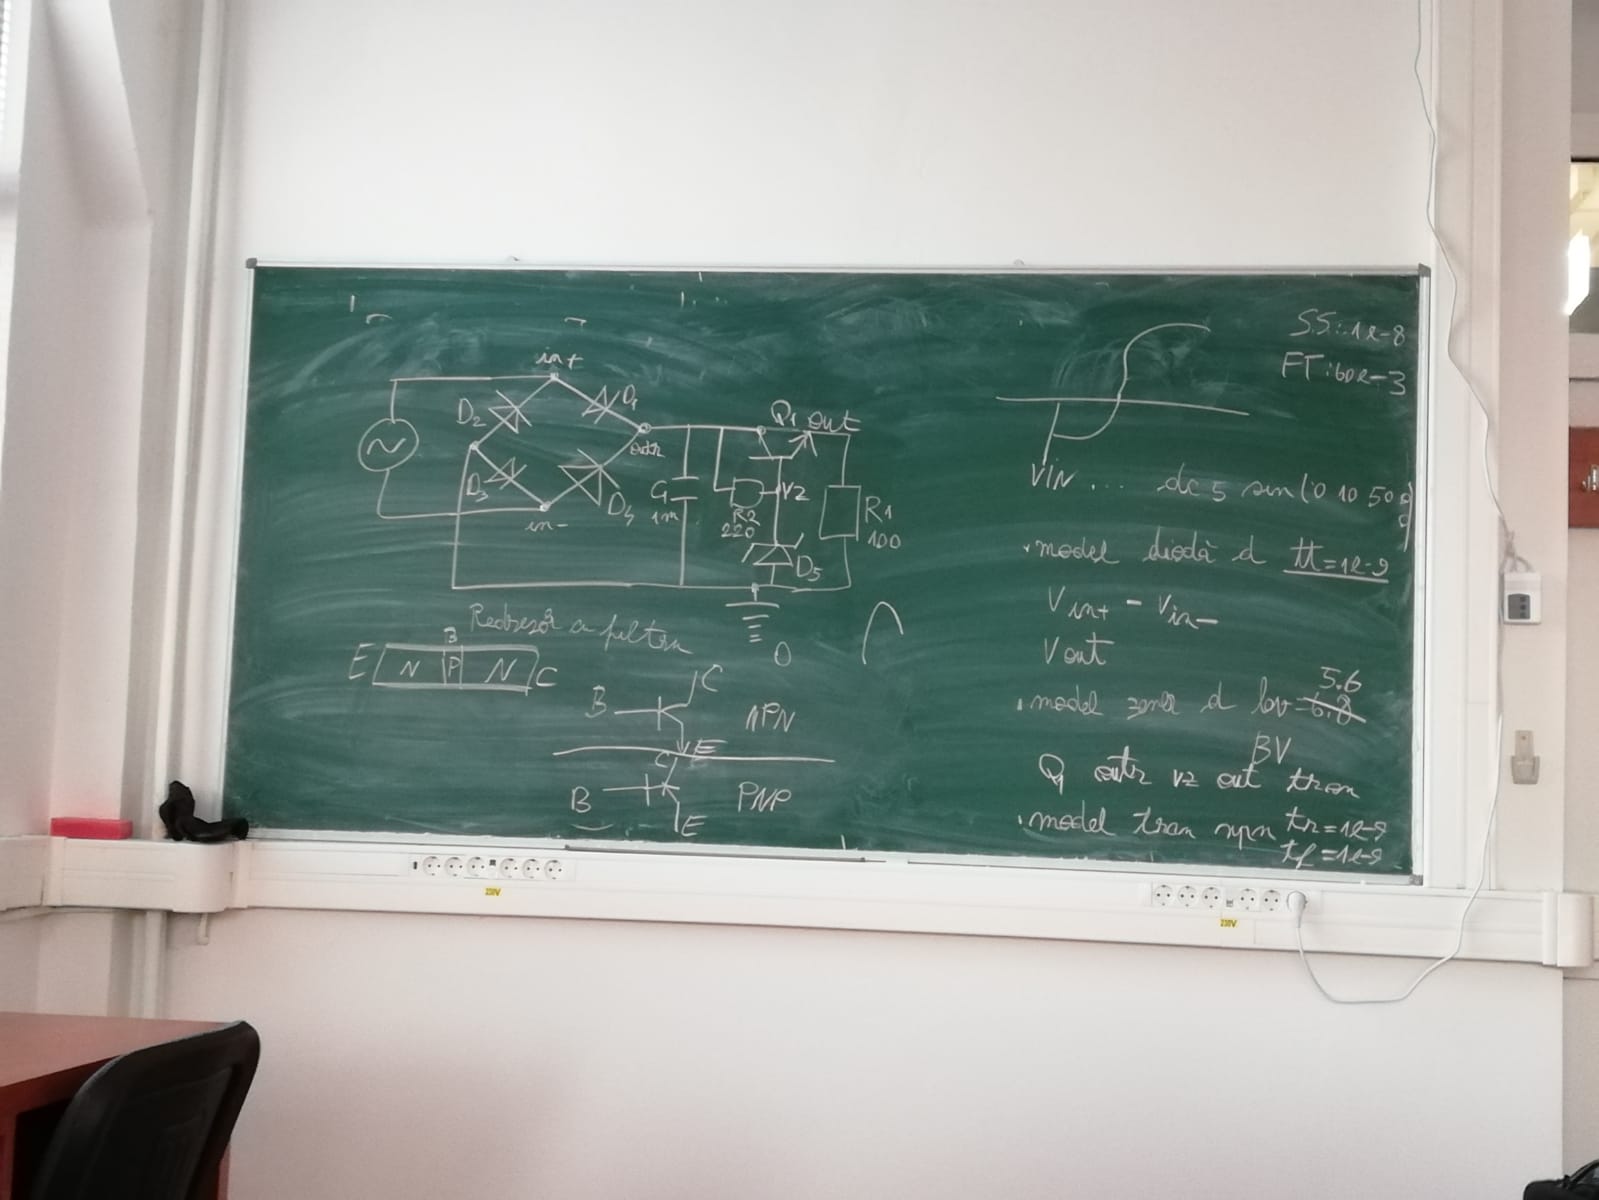 in+
D2
D1
outr
D3
D4
in-
C1
1m
R2
220
V2
Q1 out
R1
100
D5
0
Redresor cu filtru
E N P N C
B
B C E NPN
B C E PNP
SS: 1e-8
FT: 60e-3
VIN ... dc 5 sin (0 10 50
model diodă d tt=1e-9
Vin+ - Vin-
Vout
5.6
model zener d bv=6.8
BV
Q1 outr v2 out tran
model tran npn tr=1e-9
tf=1e-9
230V
230V